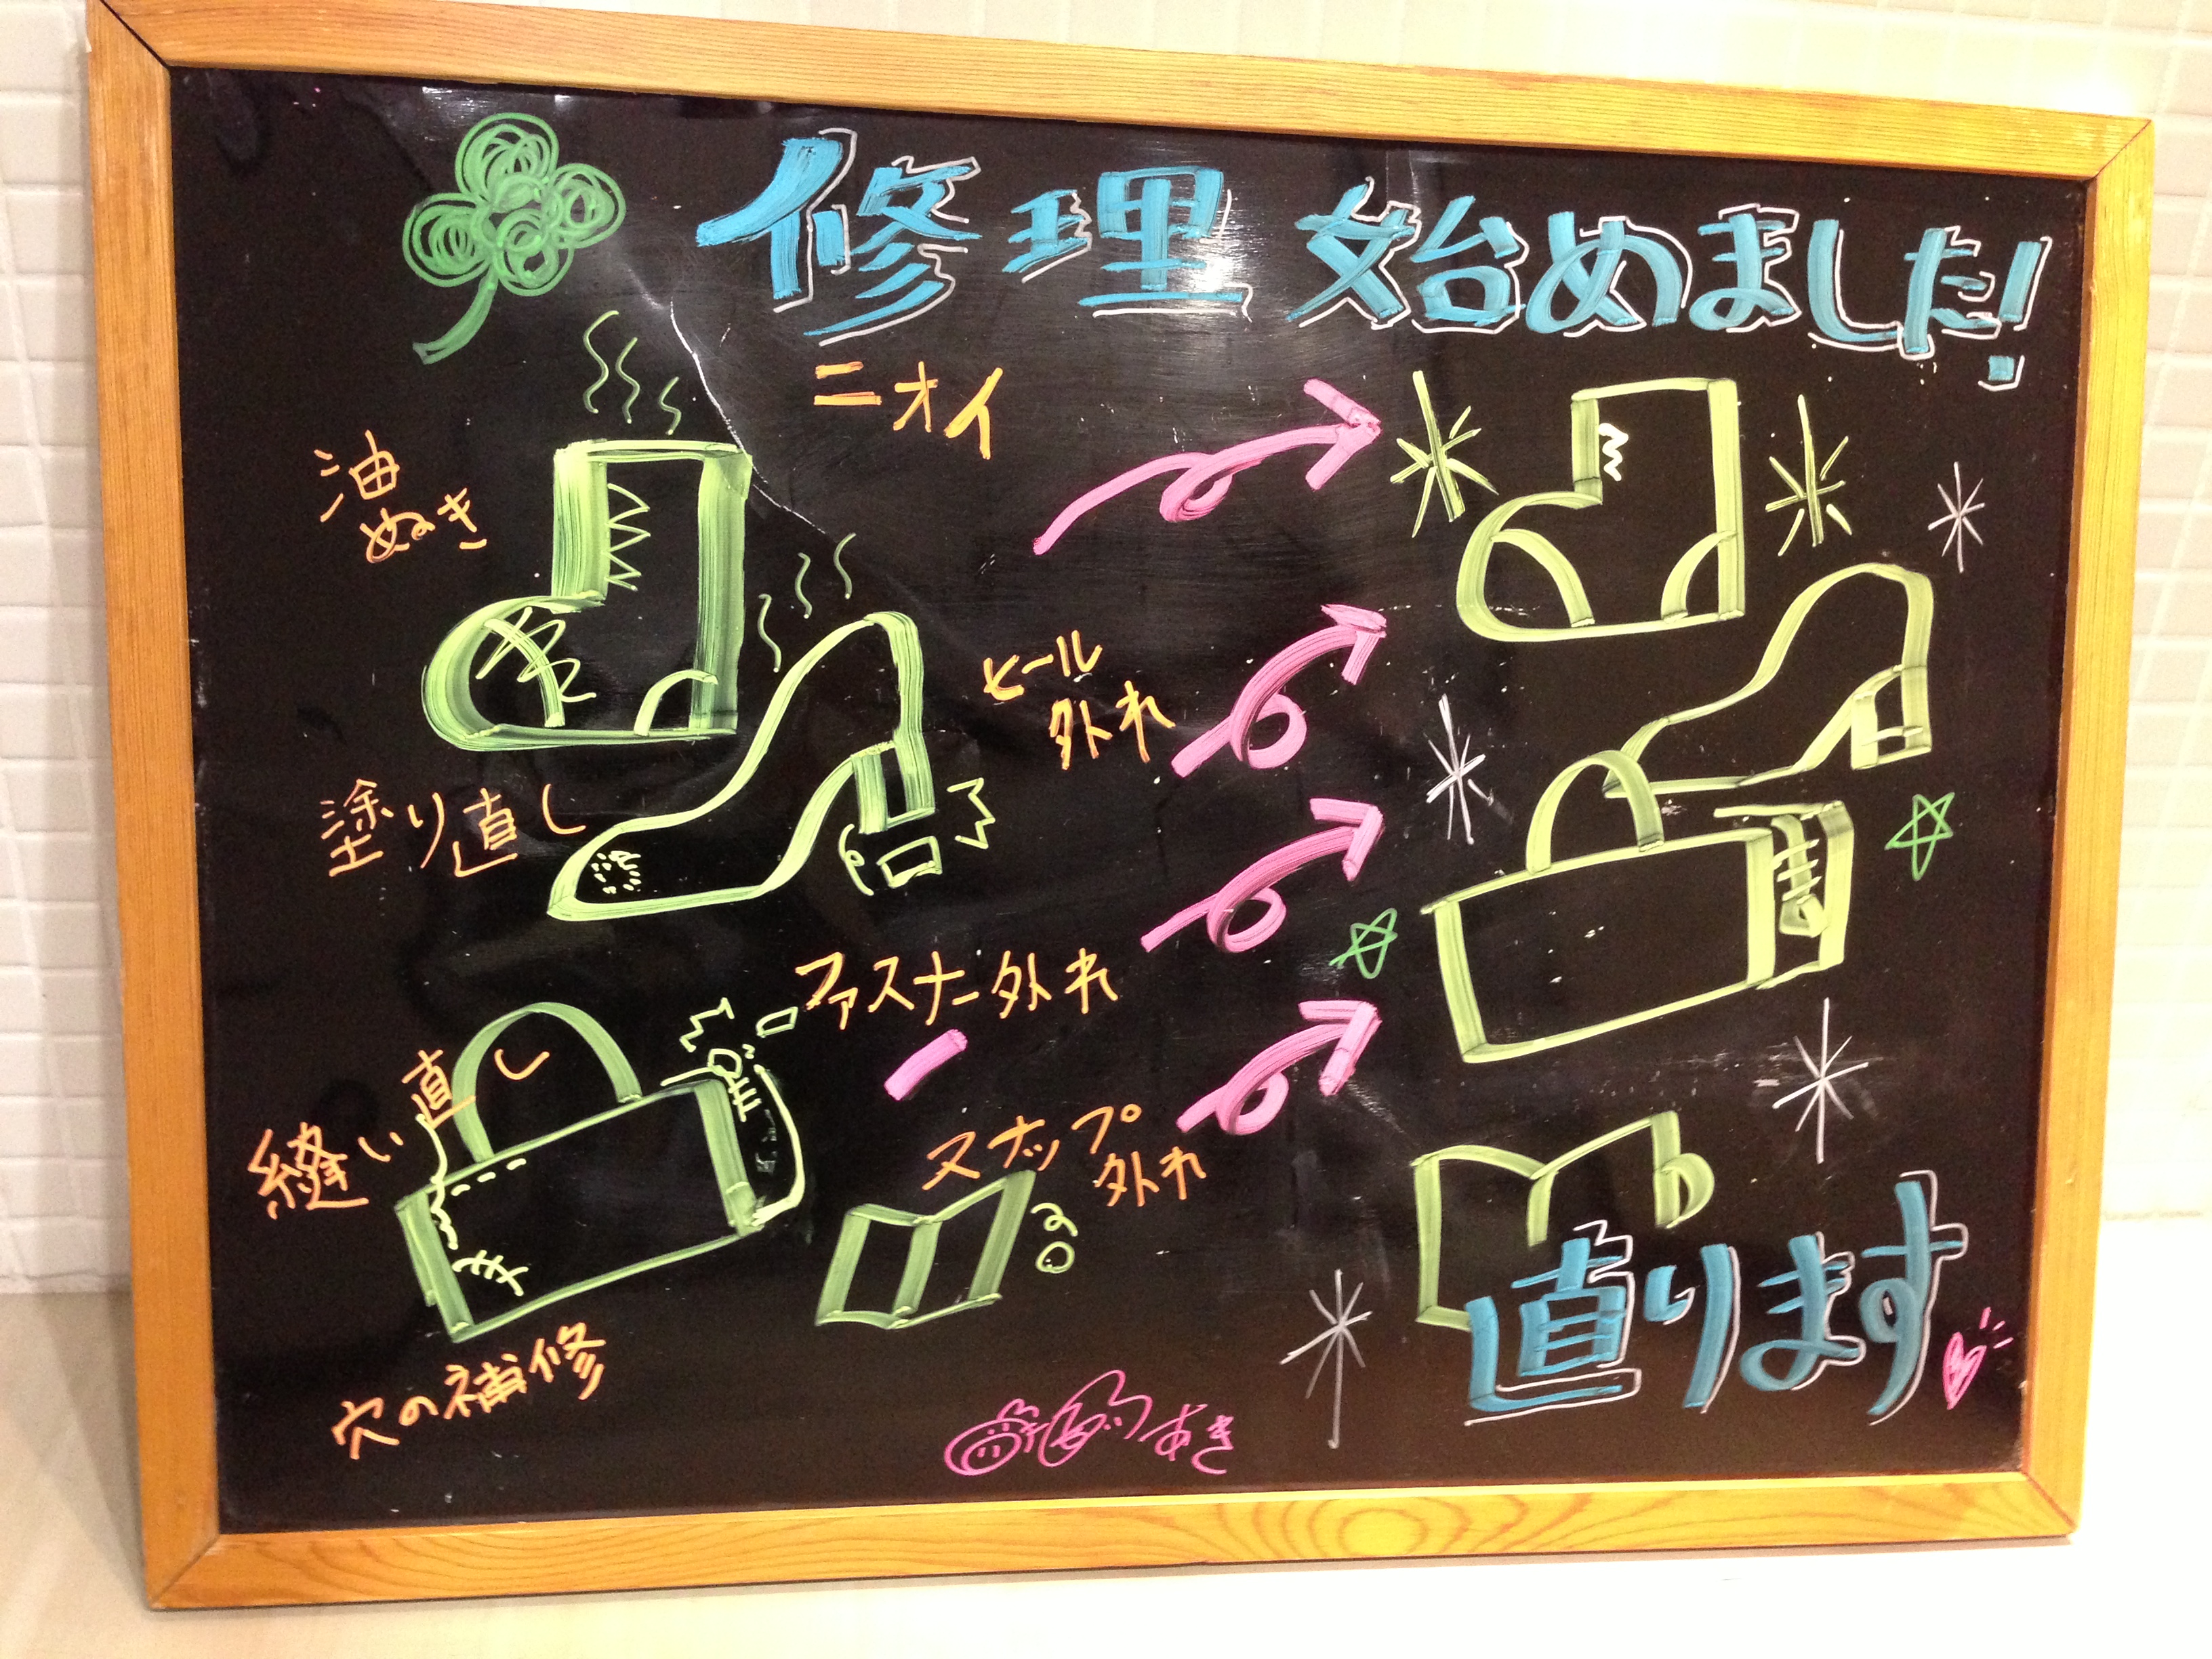 修理始めました!
ニオイ
油
ぬき
ヒール
外れ
塗り直し
ファスナー外れ
縫い直し
スナップ
外れ
穴の補修
直ります
あき